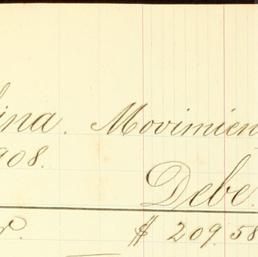 ina. Movimien
908.
Debe.
r. $ 209.58